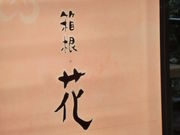 箱根
花